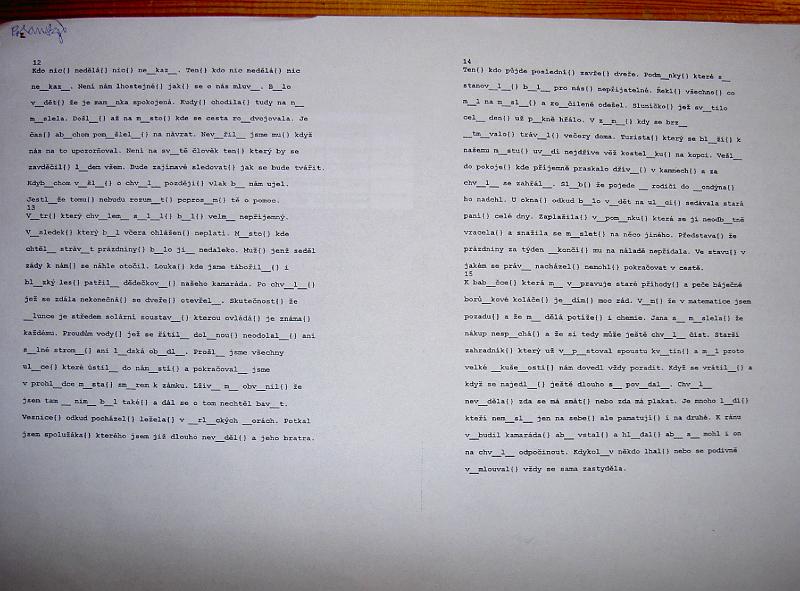 12
Kdo nic() nedělá() nic() ne__kaz__. Ten() kdo nic nedělá() nic
ne__kaz__. Není nám lhostejné() jak() se o nás mluv__. B__lo
v__dět() že je man__nka spokojená. Kudy() chodila() tudy na n__
m__slela. Došl__() až na m__sto() kde se cesta ro__dvojovala. Je
čas() ab__chom pom__šlel__() na návrat. Nev__řil__ jsme mu() když
nás na to upozorňoval. Není na sv__tě člověk ten() který by se
zavděčil() l__dem všem. Bude zajímavé sledovat() jak se bude tvářit.
Kdyb__chom v__šl__() o chv__l__ později() vlak b__ nám ujel.
Jestl__že tomu() nebudu rozum__t() popros__m() tě o pomoc.
13
V__tr() který chv__lem__ s__l__l() b__l() velm__ nepříjemný.
V__sledek() který b__l včera ohlášen() neplatí. M__sto() kde
chtěl__ stráv__t prázdniny() b__lo ji__ nedaleko. Muž() jenž seděl
zády k nám() se náhle otočil. Louka() kde jsme tábořil__() i
bl__zký les() patřil__ dědečkov__() našeho kamaráda. Po chv__l__()
jež se zdála nekonečná() se dveře() otevřel__. Skutečnost() že
__lunce je středem solární soustav__() kterou ovládá() je známa()
každému. Proudům vody() jež se řítil__ dol__nou() neodolal__() ani
s__lné strom__() ani l__dská ob__dl__. Prošl__ jsme všechny
ul__ce() které ústil__ do nám__stí() a pokračoval__ jsme
v prohl__dce m__sta() sm__rem k zámku. Lživ__ m__ obv__nil() že
jsem tam __ ním__ b__l také() a dál se o tom nechtěl bav__t.
Vesnice() odkud pocházel() ležela() v __rl__ckých __orách. Potkal
jsem spolužáka() kterého jsem již dlouho nev__děl() a jeho bratra.
14
Ten() kdo půjde poslední() zavře() dveře. Podm__nky() které s__
stanov__l() b__l__ pro nás() nepřijatelné. Řekl() všechno() co
m__l na m__sl__() a ro__čileně odešel. Sluníčko() jež sv__tilo
cel__ den() už p__kně hřálo. V z__m__() kdy se brz__
__tm__valo() tráv__l() večery doma. Turista() který se bl__ží() k
našemu m__stu() uv__dí nejdříve věž kostel__ku() na kopci. Vešl__
do pokoje() kde příjemně praskalo dřív__() v kamnech() a za
chv__l__ se zahřál__. Sl__b() že pojede __ rodiči do __ondýna()
ho nadchl. U okna() odkud b__lo v__dět na ul__ci() sedávala stará
paní() celé dny. Zaplašila() v__pom__nku() která se jí neodb__tně
vracela() a snažila se m__slet() na něco jiného. Představa() že
prázdniny za týden __končí() mu na náladě nepřidala. Ve stavu() v
jakém se práv__ nacházel() nemohl() pokračovat v cestě.
15
K bab__čce() která m__ v__pravuje staré příhody() a peče báječné
borů__kové koláče() je__dím() moc rád. V__m() že v matematice jsem
pozadu() a že m__ dělá potíže() i chemie. Jana s__ m__slela() že
nákup nesp__chá() a že si tedy může ještě chv__l__ číst. Starší
zahradník() který už v__p__stoval spoustu kv__tin() a m__l proto
velké __kuše__osti() nám dovedl vždy poradit. Když se vrátil__() a
když se najedl__() ještě dlouho s__ pov__dal__. Chv__l__
nev__děla() zda se má smát() nebo zda má plakat. Je mnoho l__dí()
kteří nem__sl__ jen na sebe() ale pamatují() i na druhé. K ránu
v__budil kamaráda() ab__ vstal() a hl__dal() ab__ s__ mohl i on
na chv__l__ odpočinout. Kdykol__v někdo lhal() nebo se podivně
v__mlouval() vždy se sama zastyděla.